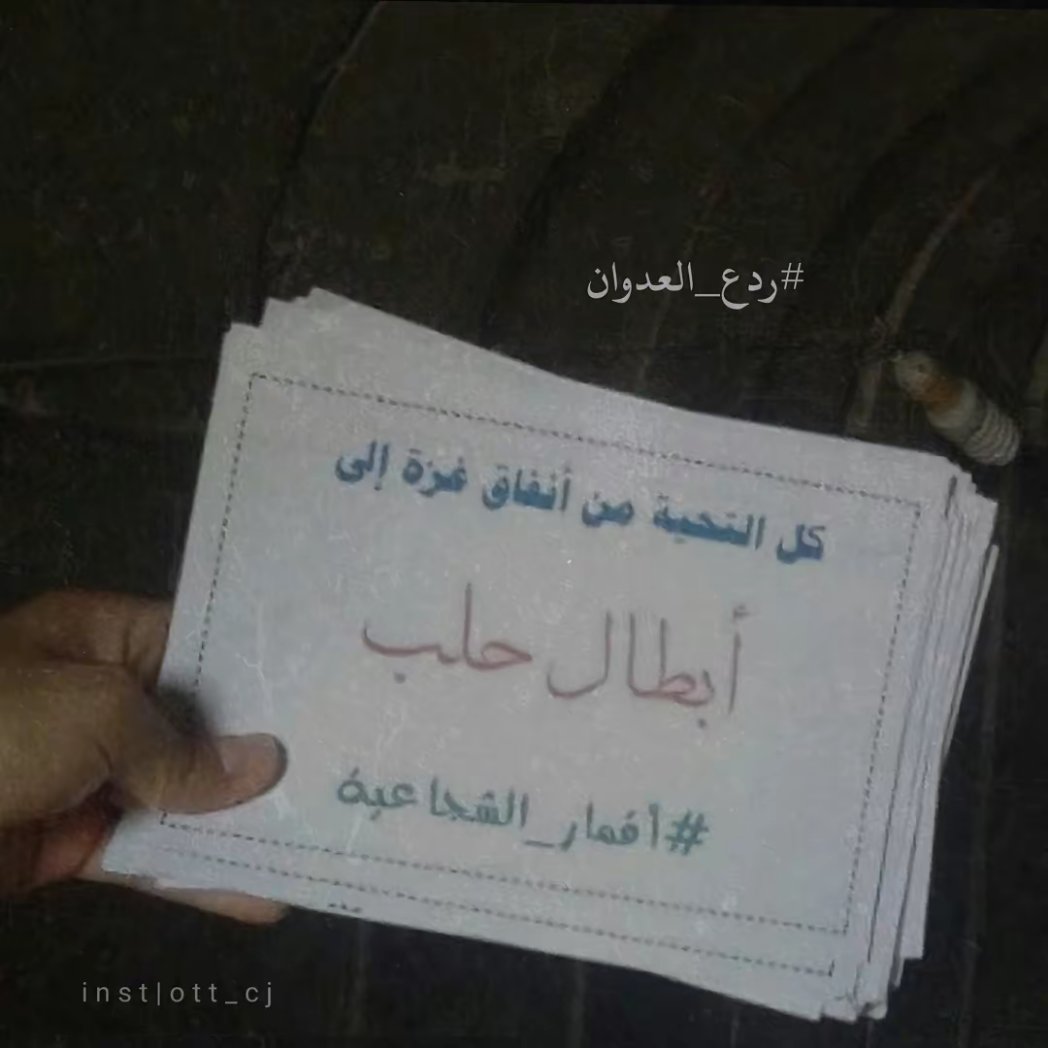 #ردع_العدوان
كل التحية من أنفاق غزة إلى
أبطال حلب
#أقمار_الشجاعية
inst|ott_cj